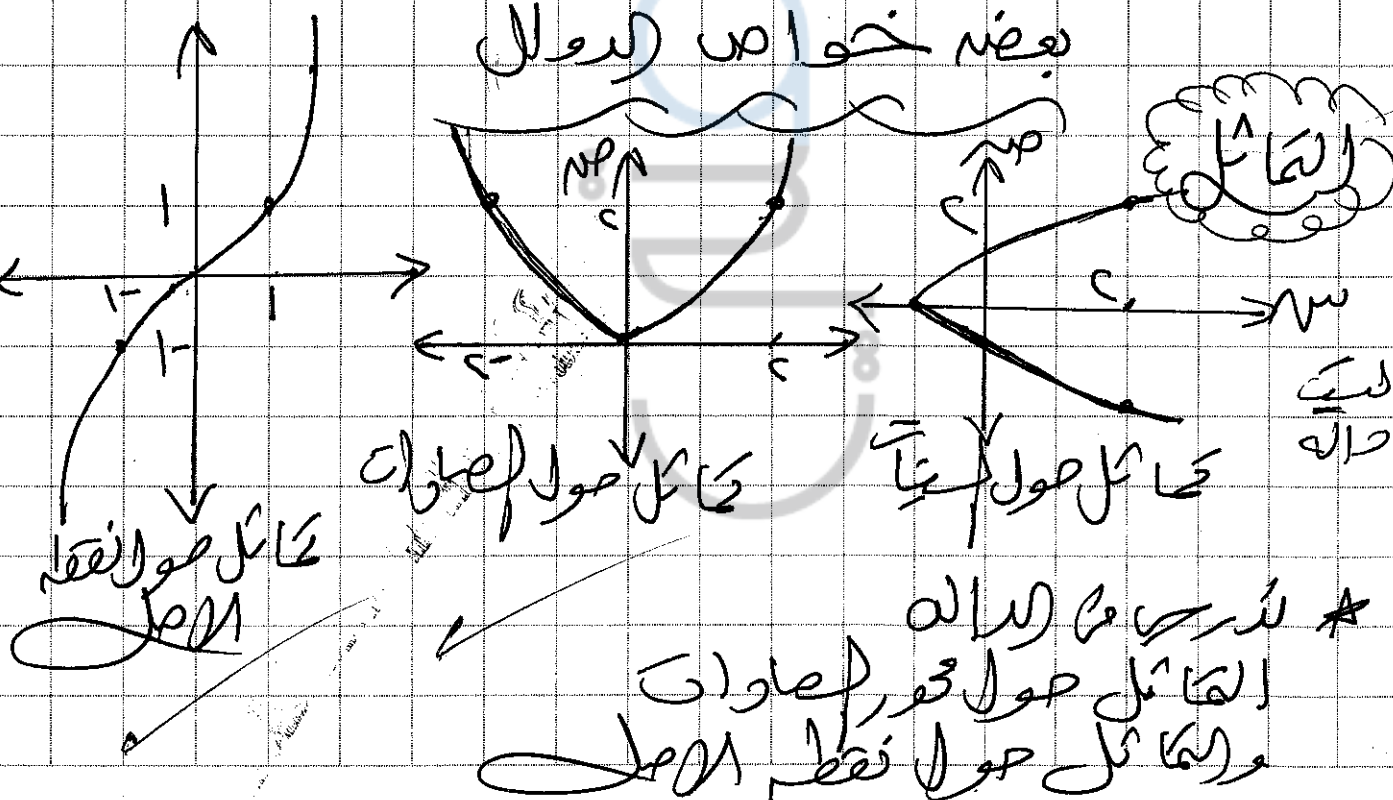 بعض خواص الدوال
التماثل
ص
٢
٢
س
ليست
دالة
تماثل حول السينات
ص
٢
-٢
٢
تماثل حول الصادات
١
-١
١
-١
تماثل حول نقطة
الأصل
* ندرس من الدالة
التماثل حول محور الصادات
والتماثل حول نقطة الأصل